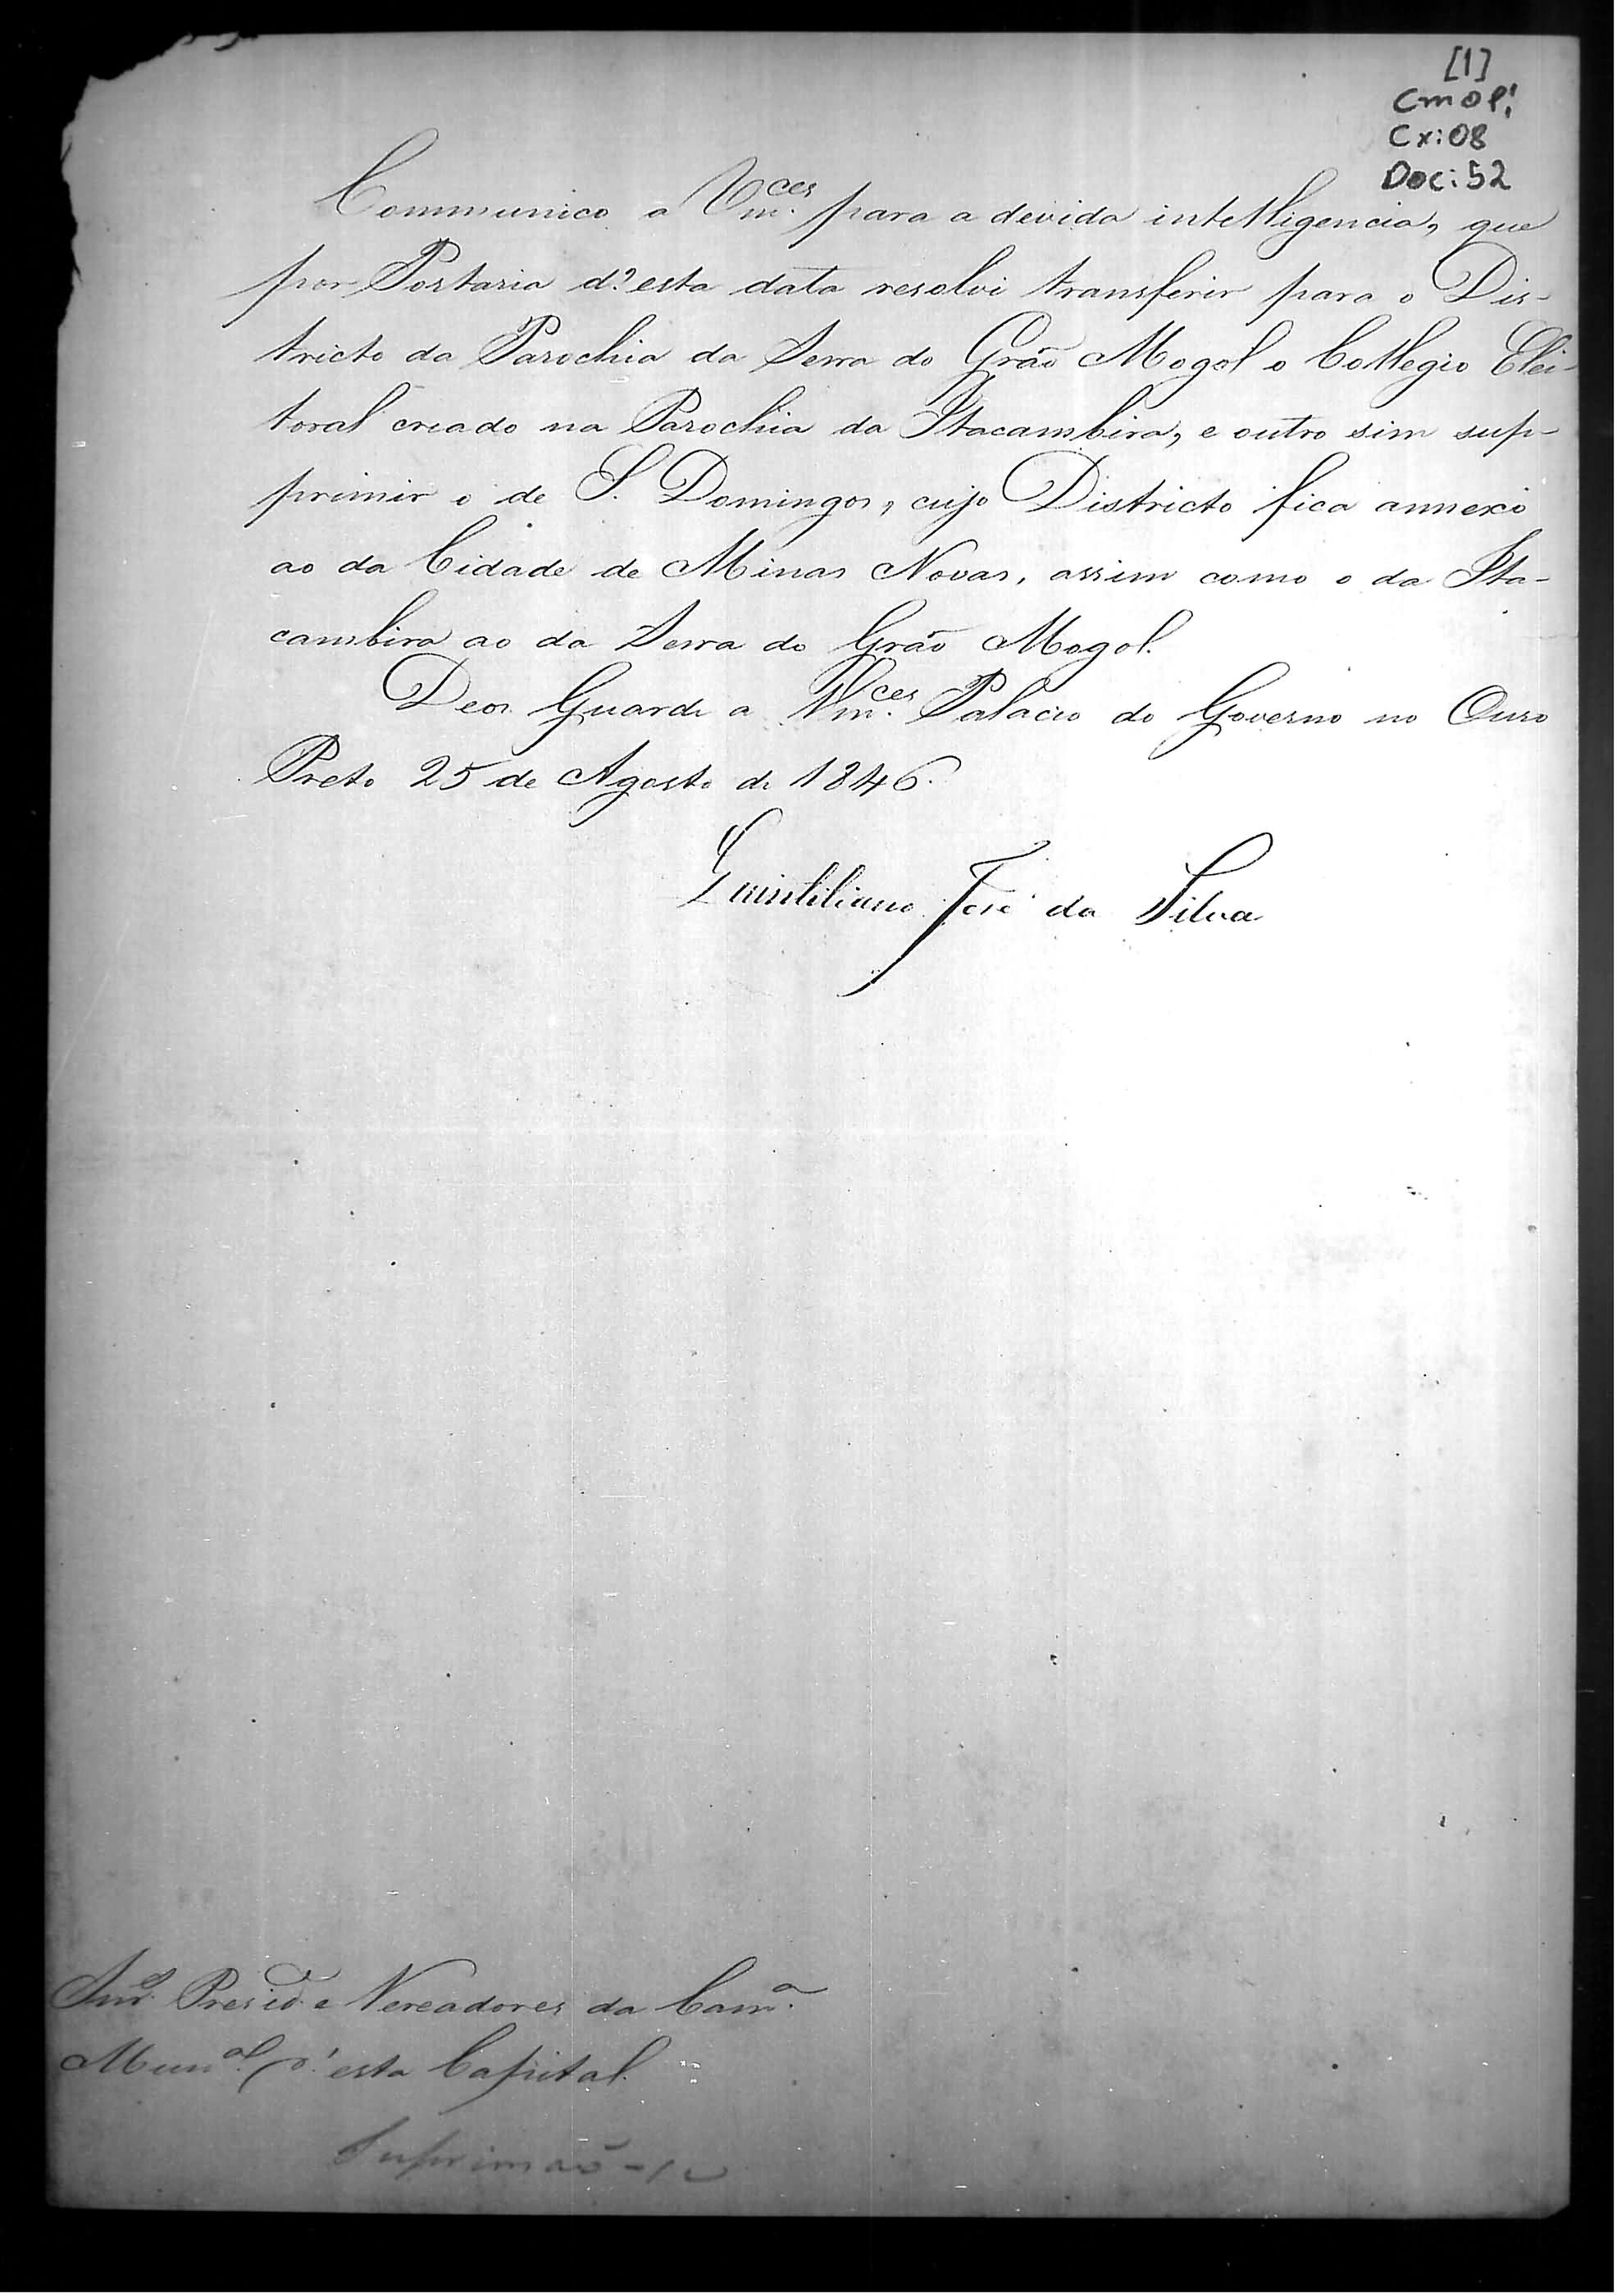 [1]
CMOP:
Cx: 08
Doc: 52
Communico a Vm.ces para a devida intelligencia, que
por Portaria d'esta data resolvi transferir para o Dis-
tricto da Parochia da Serra do Grão Mogol o Collegio Elei-
toral creado na Parochia da Itacambira, e outro sim sup-
primir o de S. Domingos, cujo Districto fica annexo
ao da Cidade de Minas Novas, assim como o da Ita-
cambira ao da Serra do Grão Mogol.
Deos Guarde a Vm.ces Palacio do Governo no Ouro
Preto 25 de Agosto de 1846.
Quintiliano José da Silva
Snr.s Presid.e e Vereadores da Cam.a
Mun.al d'esta Capital.